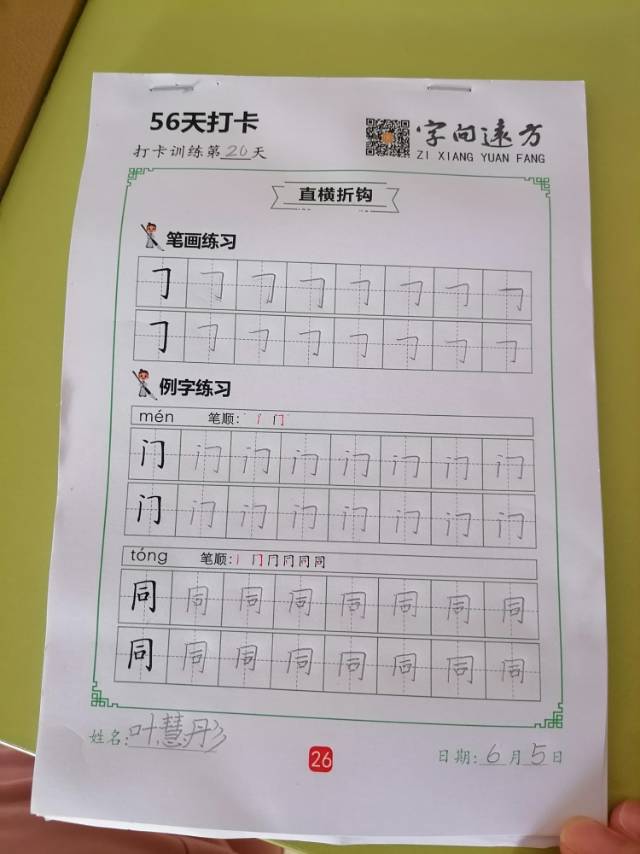 56天打卡
打卡训练第20天
字向远方
ZI XIANG YUAN FANG
直横折钩
笔画练习
㇆ ㇆ ㇆ ㇆ ㇆ ㇆ ㇆ ㇆
㇆ ㇆ ㇆ ㇆ ㇆ ㇆ ㇆ ㇆
例字练习
mén 笔顺:
门 门 门 门 门 门 门 门
门 门 门 门 门 门 门 门
tóng 笔顺:
同 同 同 同 同 同 同 同
同 同 同 同 同 同 同 同
姓名:叶慧彤
26
日期:6月5日